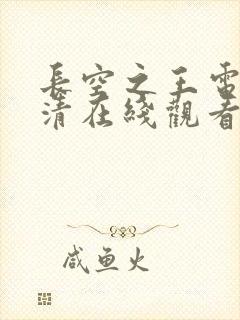 長空之王雷
清在綫觀看
咸鱼火